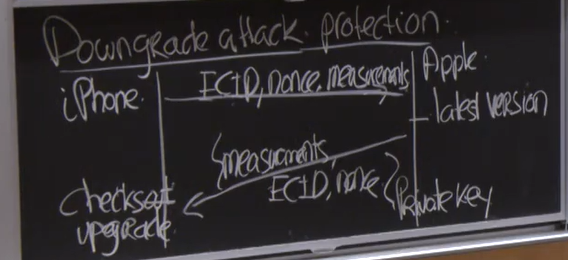 Downgrade attack protection.
iPhone.
ECID, nonce, measurements
Apple.
- latest version
{measurements,
ECID, nonce}
Private key
Checks at
upgrade.